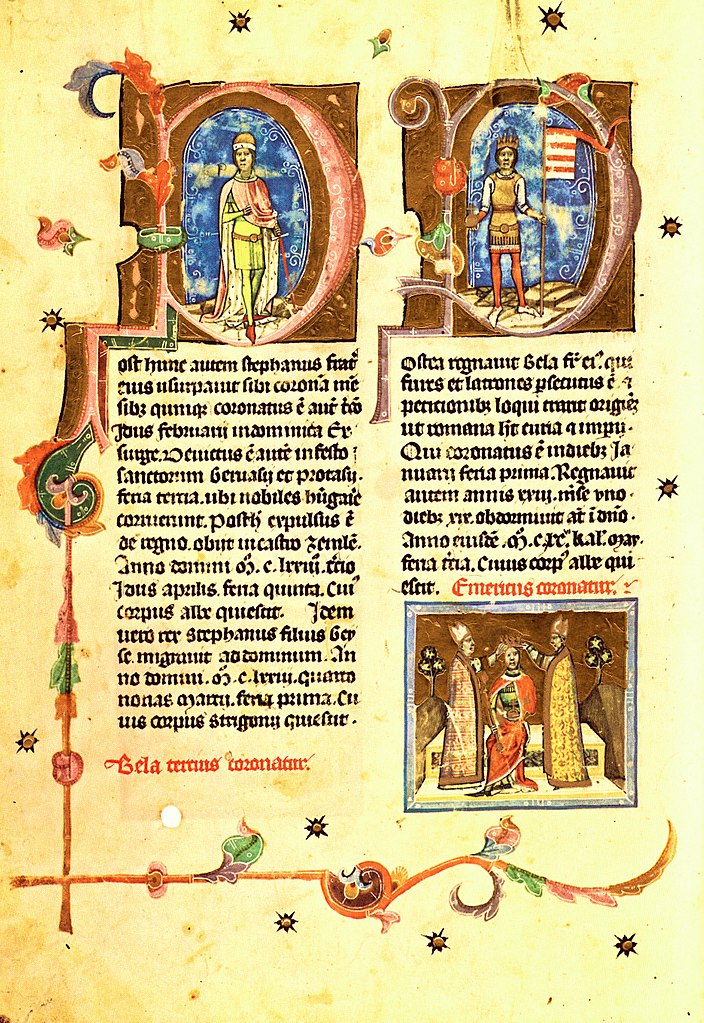 Post hunc autem stephanus frat̾
eius usurpauit sibi coronā mē
sibꝫ quinqꝫ coronatus ē aut̄ t̄cio
Idus februarij in dominica Ex
surge. Deuictus ē autē in festo
sanctorum Geruasij et protasij.
feria tercia. ubi nobiles hūgarie
corruerunt. Post h̄ expulsus ē
de regno. obijt in castro zemlē.
Anno domini M. c. lxxiii. t̄cio
Idus aprilis. feria quinta. Cuiꝰ
corpus albe quiescit. Idem
uero rex stephanus filius Gey
se. migrauit ad dominum. An
no domini. M. c. lxxiii. quarto
nonas marcij. feria prima. Cu
ius corpus strigonij quiescit.
Bela tercius coronatur.
Postea regnauit Bela fr̄ eiꝰ. qui
fures et latrones ꝑsecutus ē. ⁊
peticionibꝫ loqui traxit origiēꝫ
ut romana hꝫ curia ⁊ imꝑij.
Qui coronatus ē in diebꝫ Ia
nuarij feria prima. Regnauit
autem annis xxiij. mēse vno.
diebꝫ xix. obdormiuit aūt ī dño.
Anno eiusdē. M. c. xcꝰ. kal. May.
feria t̄cia. Cuius corpꝰ albe qui
escit. Emericus coronatur.